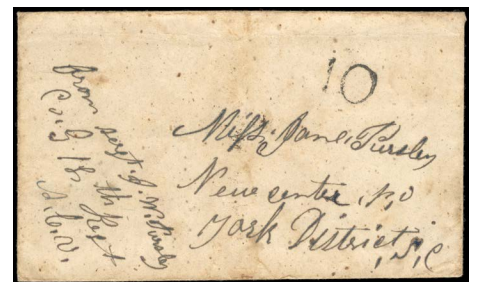 10
Miss Jane Pursley
New center P,O
York District, S, C
from sergt J W. Pursley
Co, G 18 th Regt
S. C. V.